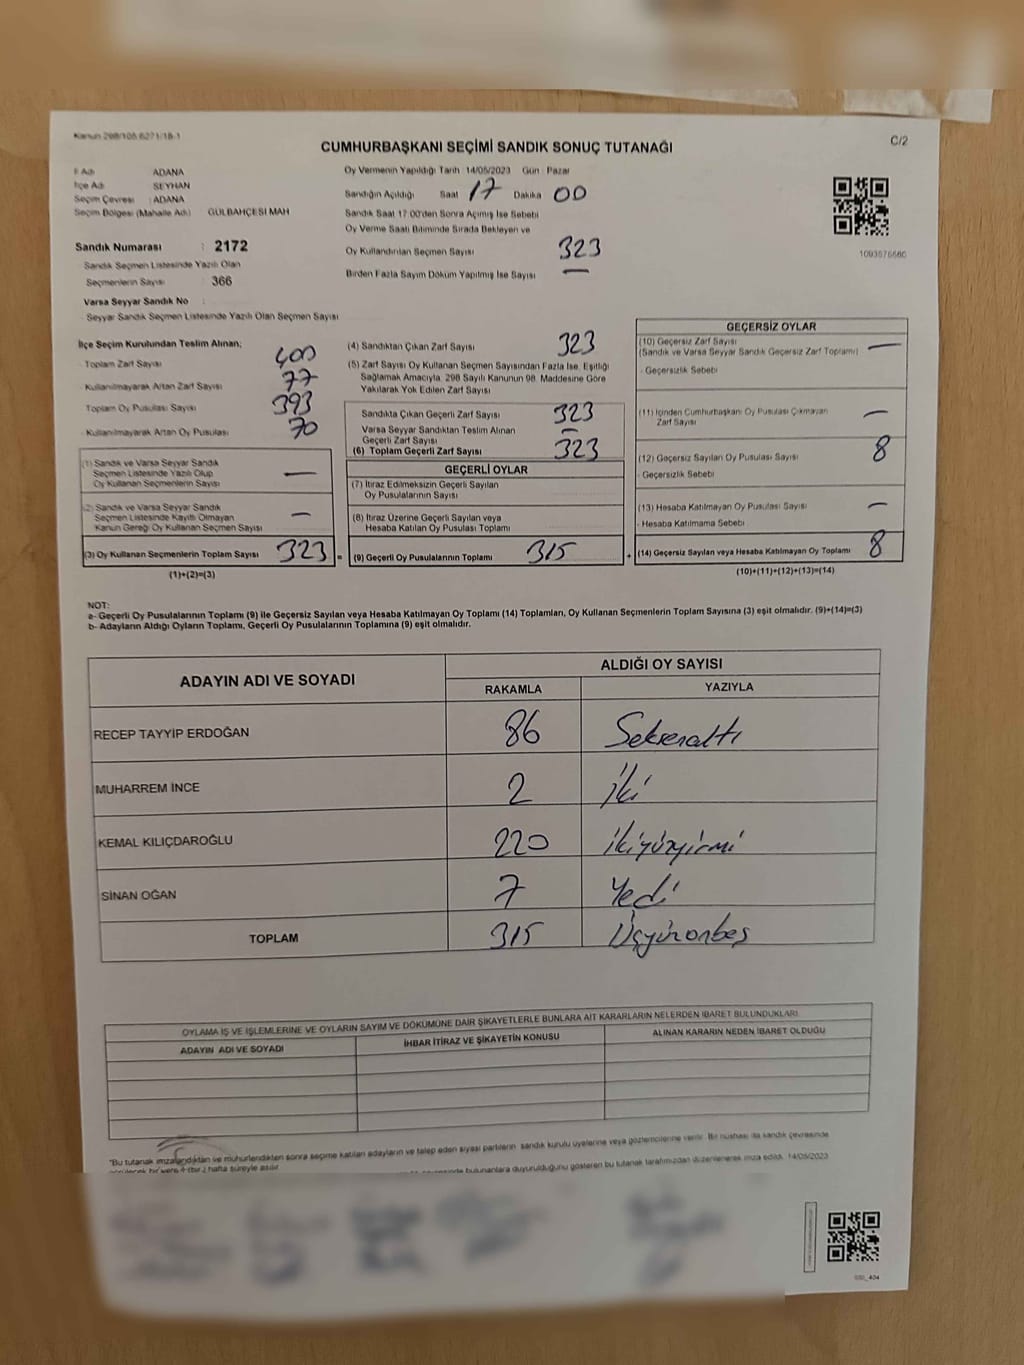 Kanun 298/105 6271/18-1
C/2
CUMHURBAŞKANI SEÇİMİ SANDIK SONUÇ TUTANAĞI
İl Adı ADANA
İlçe Adı SEYHAN
Seçim Çevresi : ADANA
Seçim Bölgesi (Mahalle Adı) GÜLBAHÇESİ MAH
Sandık Numarası : 2172
Sandık Seçmen Listesinde Yazılı Olan
Seçmenlerin Sayısı : 366
Varsa Seyyar Sandık No :
- Seyyar Sandık Seçmen Listesinde Yazılı Olan Seçmen Sayısı
Oy Vermenin Yapıldığı Tarih 14/05/2023 Gün : Pazar
Sandığın Açıldığı Saat 17 Dakika 00
Sandık Saat 17:00'den Sonra Açımış İse Sebebi
Oy Verme Saati Bitiminde Sırada Bekleyen ve
Oy Kullandırılan Seçmen Sayısı 323
Birden Fazla Sayım Döküm Yapılmış İse Sayısı —
1093876680
İlçe Seçim Kurulundan Teslim Alınan;
- Toplam Zarf Sayısı 400
- Kullanılmayarak Artan Zarf Sayısı 77
Toplam Oy Pusulası Sayısı 393
- Kullanılmayarak Artan Oy Pusulası 70
(1) Sandık ve Varsa Seyyar Sandık
Seçmen Listesinde Yazılı Olup
Oy Kullanan Seçmenlerin Sayısı —
(2) Sandık ve Varsa Seyyar Sandık
Seçmen Listesinde Kayıtlı Olmayan
Kanun Gereği Oy Kullanan Seçmen Sayısı —
(3) Oy Kullanan Seçmenlerin Toplam Sayısı 323 =
(1)+(2)=(3)
(4) Sandıktan Çıkan Zarf Sayısı 323
(5) Zarf Sayısı Oy Kullanan Seçmen Sayısından Fazla İse, Eşitliği
Sağlamak Amacıyla, 298 Sayılı Kanunun 98. Maddesine Göre
Yakılarak Yok Edilen Zarf Sayısı
Sandıkta Çıkan Geçerli Zarf Sayısı 323
Varsa Seyyar Sandıktan Teslim Alınan
Geçerli Zarf Sayısı —
(6) Toplam Geçerli Zarf Sayısı 323
GEÇERLİ OYLAR
(7) İtiraz Edilmeksizin Geçerli Sayılan
Oy Pusulalarının Sayısı
(8) İtiraz Üzerine Geçerli Sayılan veya
Hesaba Katılan Oy Pusulası Toplamı
(9) Geçerli Oy Pusulalarının Toplamı 315 +
GEÇERSİZ OYLAR
(10) Geçersiz Zarf Sayısı —
(Sandık ve Varsa Seyyar Sandık Geçersiz Zarf Toplamı)
- Geçersizlik Sebebi
(11) İçinden Cumhurbaşkanı Oy Pusulası Çıkmayan
Zarf Sayısı —
(12) Geçersiz Sayılan Oy Pusulası Sayısı 8
- Geçersizlik Sebebi
(13) Hesaba Katılmayan Oy Pusulası Sayısı —
- Hesaba Katılmama Sebebi
(14) Geçersiz Sayılan veya Hesaba Katılmayan Oy Toplamı 8
(10)+(11)+(12)+(13)=(14)
NOT:
a- Geçerli Oy Pusulalarının Toplamı (9) ile Geçersiz Sayılan veya Hesaba Katılmayan Oy Toplamı (14) Toplamları, Oy Kullanan Seçmenlerin Toplam Sayısına (3) eşit olmalıdır. (9)+(14)=(3)
b- Adayların Aldığı Oyların Toplamı, Geçerli Oy Pusulalarının Toplamına (9) eşit olmalıdır.
ADAYIN ADI VE SOYADI
ALDIĞI OY SAYISI
RAKAMLA YAZIYLA
RECEP TAYYİP ERDOĞAN 86 Seksenaltı
MUHARREM İNCE 2 İki
KEMAL KILIÇDAROĞLU 220 İkiyüzyirmi
SİNAN OĞAN 7 Yedi
TOPLAM 315 Üçyüzonbeş
OYLAMA İŞ VE İŞLEMLERİNE VE OYLARIN SAYIM VE DÖKÜMÜNE DAİR ŞİKAYETLERLE BUNLARA AİT KARARLARIN NELERDEN İBARET BULUNDUKLARI
ADAYIN ADI VE SOYADI İHBAR İTİRAZ VE ŞİKAYETİN KONUSU ALINAN KARARIN NEDEN İBARET OLDUĞU
"Bu tutanak imzalandıktan ve mühürlendikten sonra seçime katılan adayların ve talep eden siyasi partilerin sandık kurulu üyelerine veya gözlemcilerine verilir. Bir nüshası da sandık çevresinde
hafta süreyle asılır. bulunanlara duyurulduğunu gösteren bu tutanak tarafımızdan düzenlenerek imza edildi. 14/05/2023